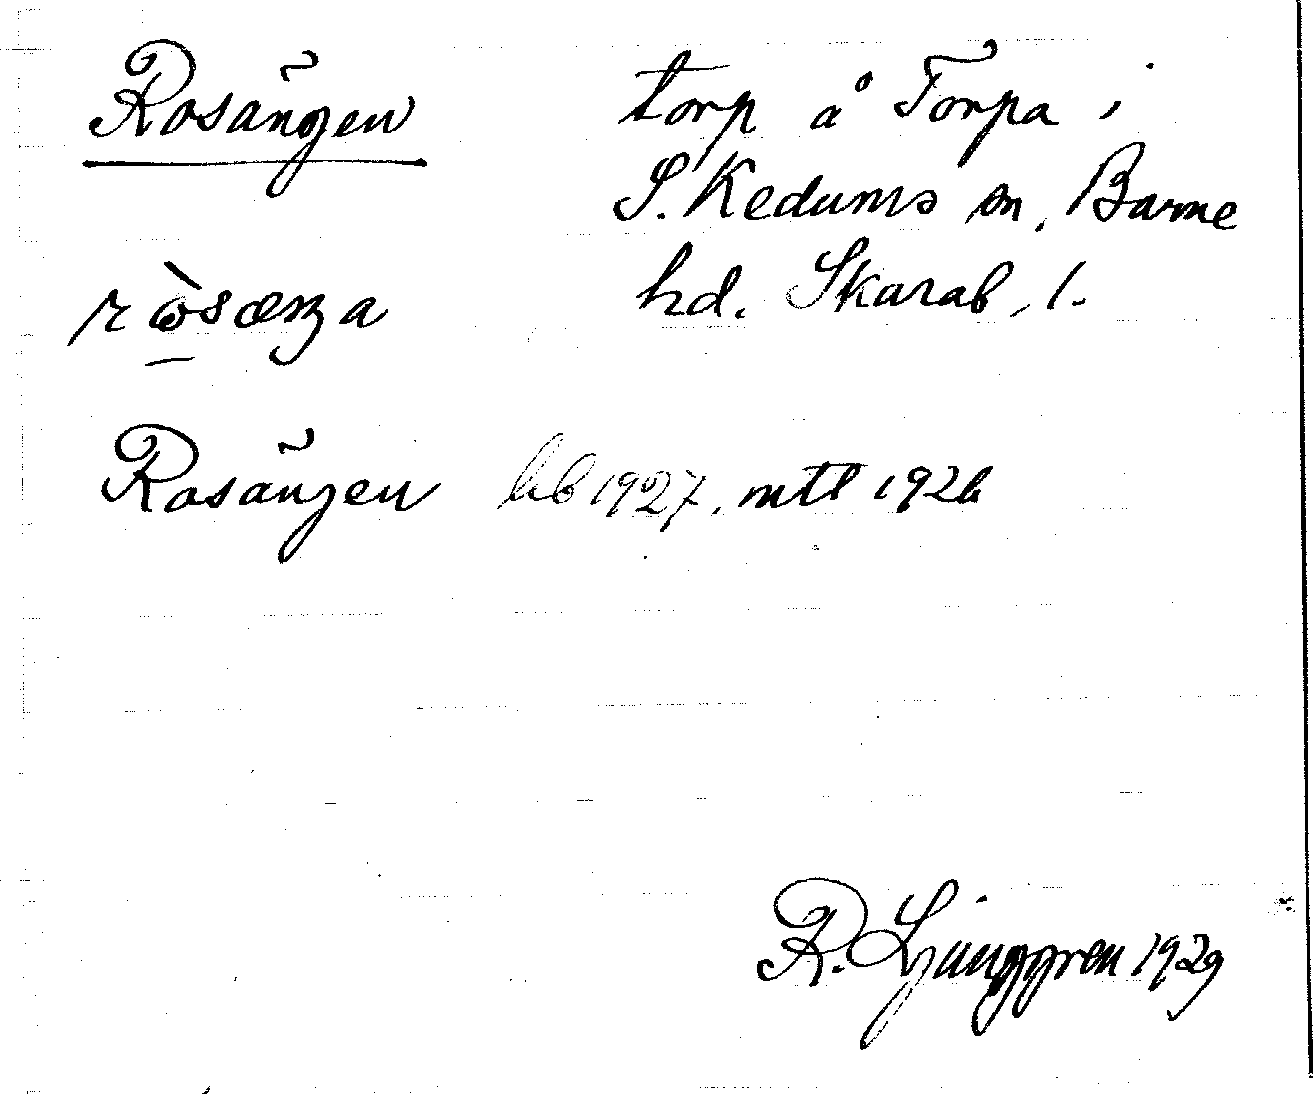 Rosängen
torp å Torpa i
S. Kedums sn, Barne
hd. Skarab. l.
rὼsæŋa
Rosängen hb 1927, mtl 1926
R. Ljunggren 1929